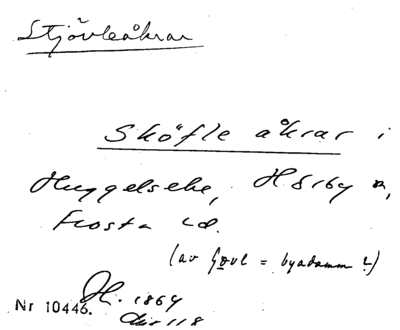 Stjövleåkrar
Sköfle åkrar i
Huggelseke, Hörby sn,
Frosta hd.
(av Gøvl = byadamm ?)
H. 1864
Nr 10446.
118